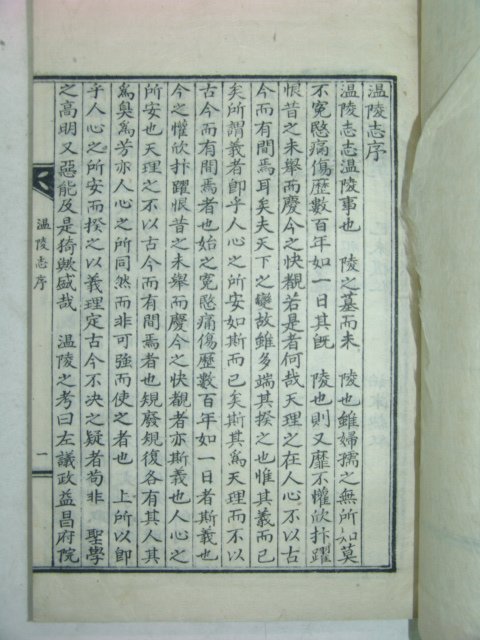 温陵志序
温陵志志温陵事也　陵之墓而未　陵也雖婦孺之無所知莫
不冤愍痛傷歷數百年如一日其旣　陵也則又靡不懽欣抃躍
恨昔之未舉而慶今之快覩若是者何哉天理之在人心不以古
今而有間焉耳矣夫天下之變故雖多端其揆之也惟其義而已
矣所謂義者卽乎人心之所安如斯而已矣斯其爲天理而不以
古今而有間焉者也始之冤愍痛傷歷數百年如一日者斯義也
今之懽欣抃躍恨昔之未舉而慶今之快覩者亦斯義也人心之
所安也天理之不以古今而有間焉者也規廢規復各有其人其
爲奐爲芳亦人心之所同然而非可強而使之者也　上所以卽
乎人心之所安而揆之以義理定古今不决之疑者苟非　聖學
之高明又惡能及是猗歟盛哉　温陵之考曰左議政益昌府院
温陵志序
一